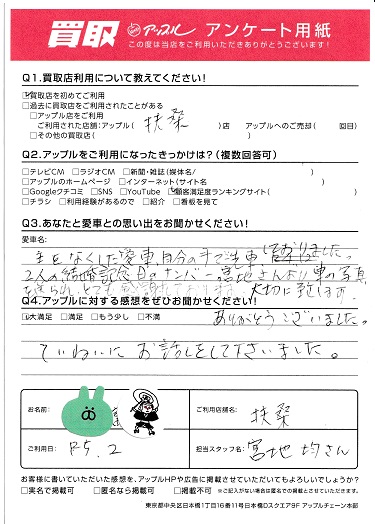 買取 アップル アンケート用紙
この度は当店をご利用いただきありがとうございます!
Q1.買取店利用について教えてください!
☑買取店を初めてご利用
□過去に買取店をご利用されたことがある
□アップル店をご利用
ご利用された店舗:アップル( 扶桑 )店 アップルへのご売却( 回目)
□その他の買取店( )
Q2.アップルをご利用になったきっかけは?(複数回答可)
□テレビCM □ラジオCM □新聞・雑誌(媒体名/ )
□アップルのホームページ □インターネット(サイト名 )
□Googleクチコミ □SNS □YouTube ☑顧客満足度ランキングサイト( )
□チラシ □利用経験があるので □紹介 □看板を見て
Q3.あなたと愛車との思い出をお聞かせください!
愛車名:
主をなくした愛車、自分の手で
2人の結婚記念日のナンバー。宮地さんより車の写真
大切に致します。
Q4.アップルに対する感想をぜひお聞かせください!
☑大満足 □満足 □もう少し □不満
ありがとうございました。
ていねいにお話しをして下さいました。
お名前:
ご利用店舗名: 扶桑
ご利用日: R5.2
担当スタッフ名: 宮地 均さん
お客様に書いていただいた感想を、アップルHPや広告に掲載させていただいてもよろしいでしょうか?
□実名で掲載可 □匿名なら掲載可 □掲載不可 ※ご記入がない場合は匿名での掲載とさせていただきます。
東京都中央区日本橋1丁目16番11号日本橋Dスクエア9F アップルチェーン本部